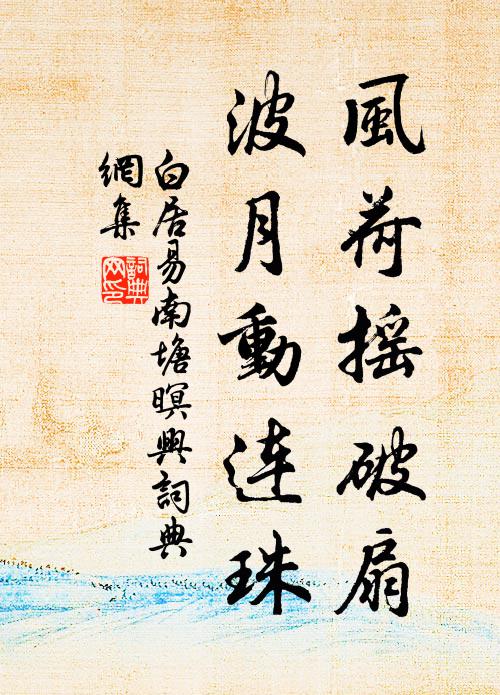 風荷摇破扇
波月動连珠
白居易南塘暝興詞典
網集
詞典
网印